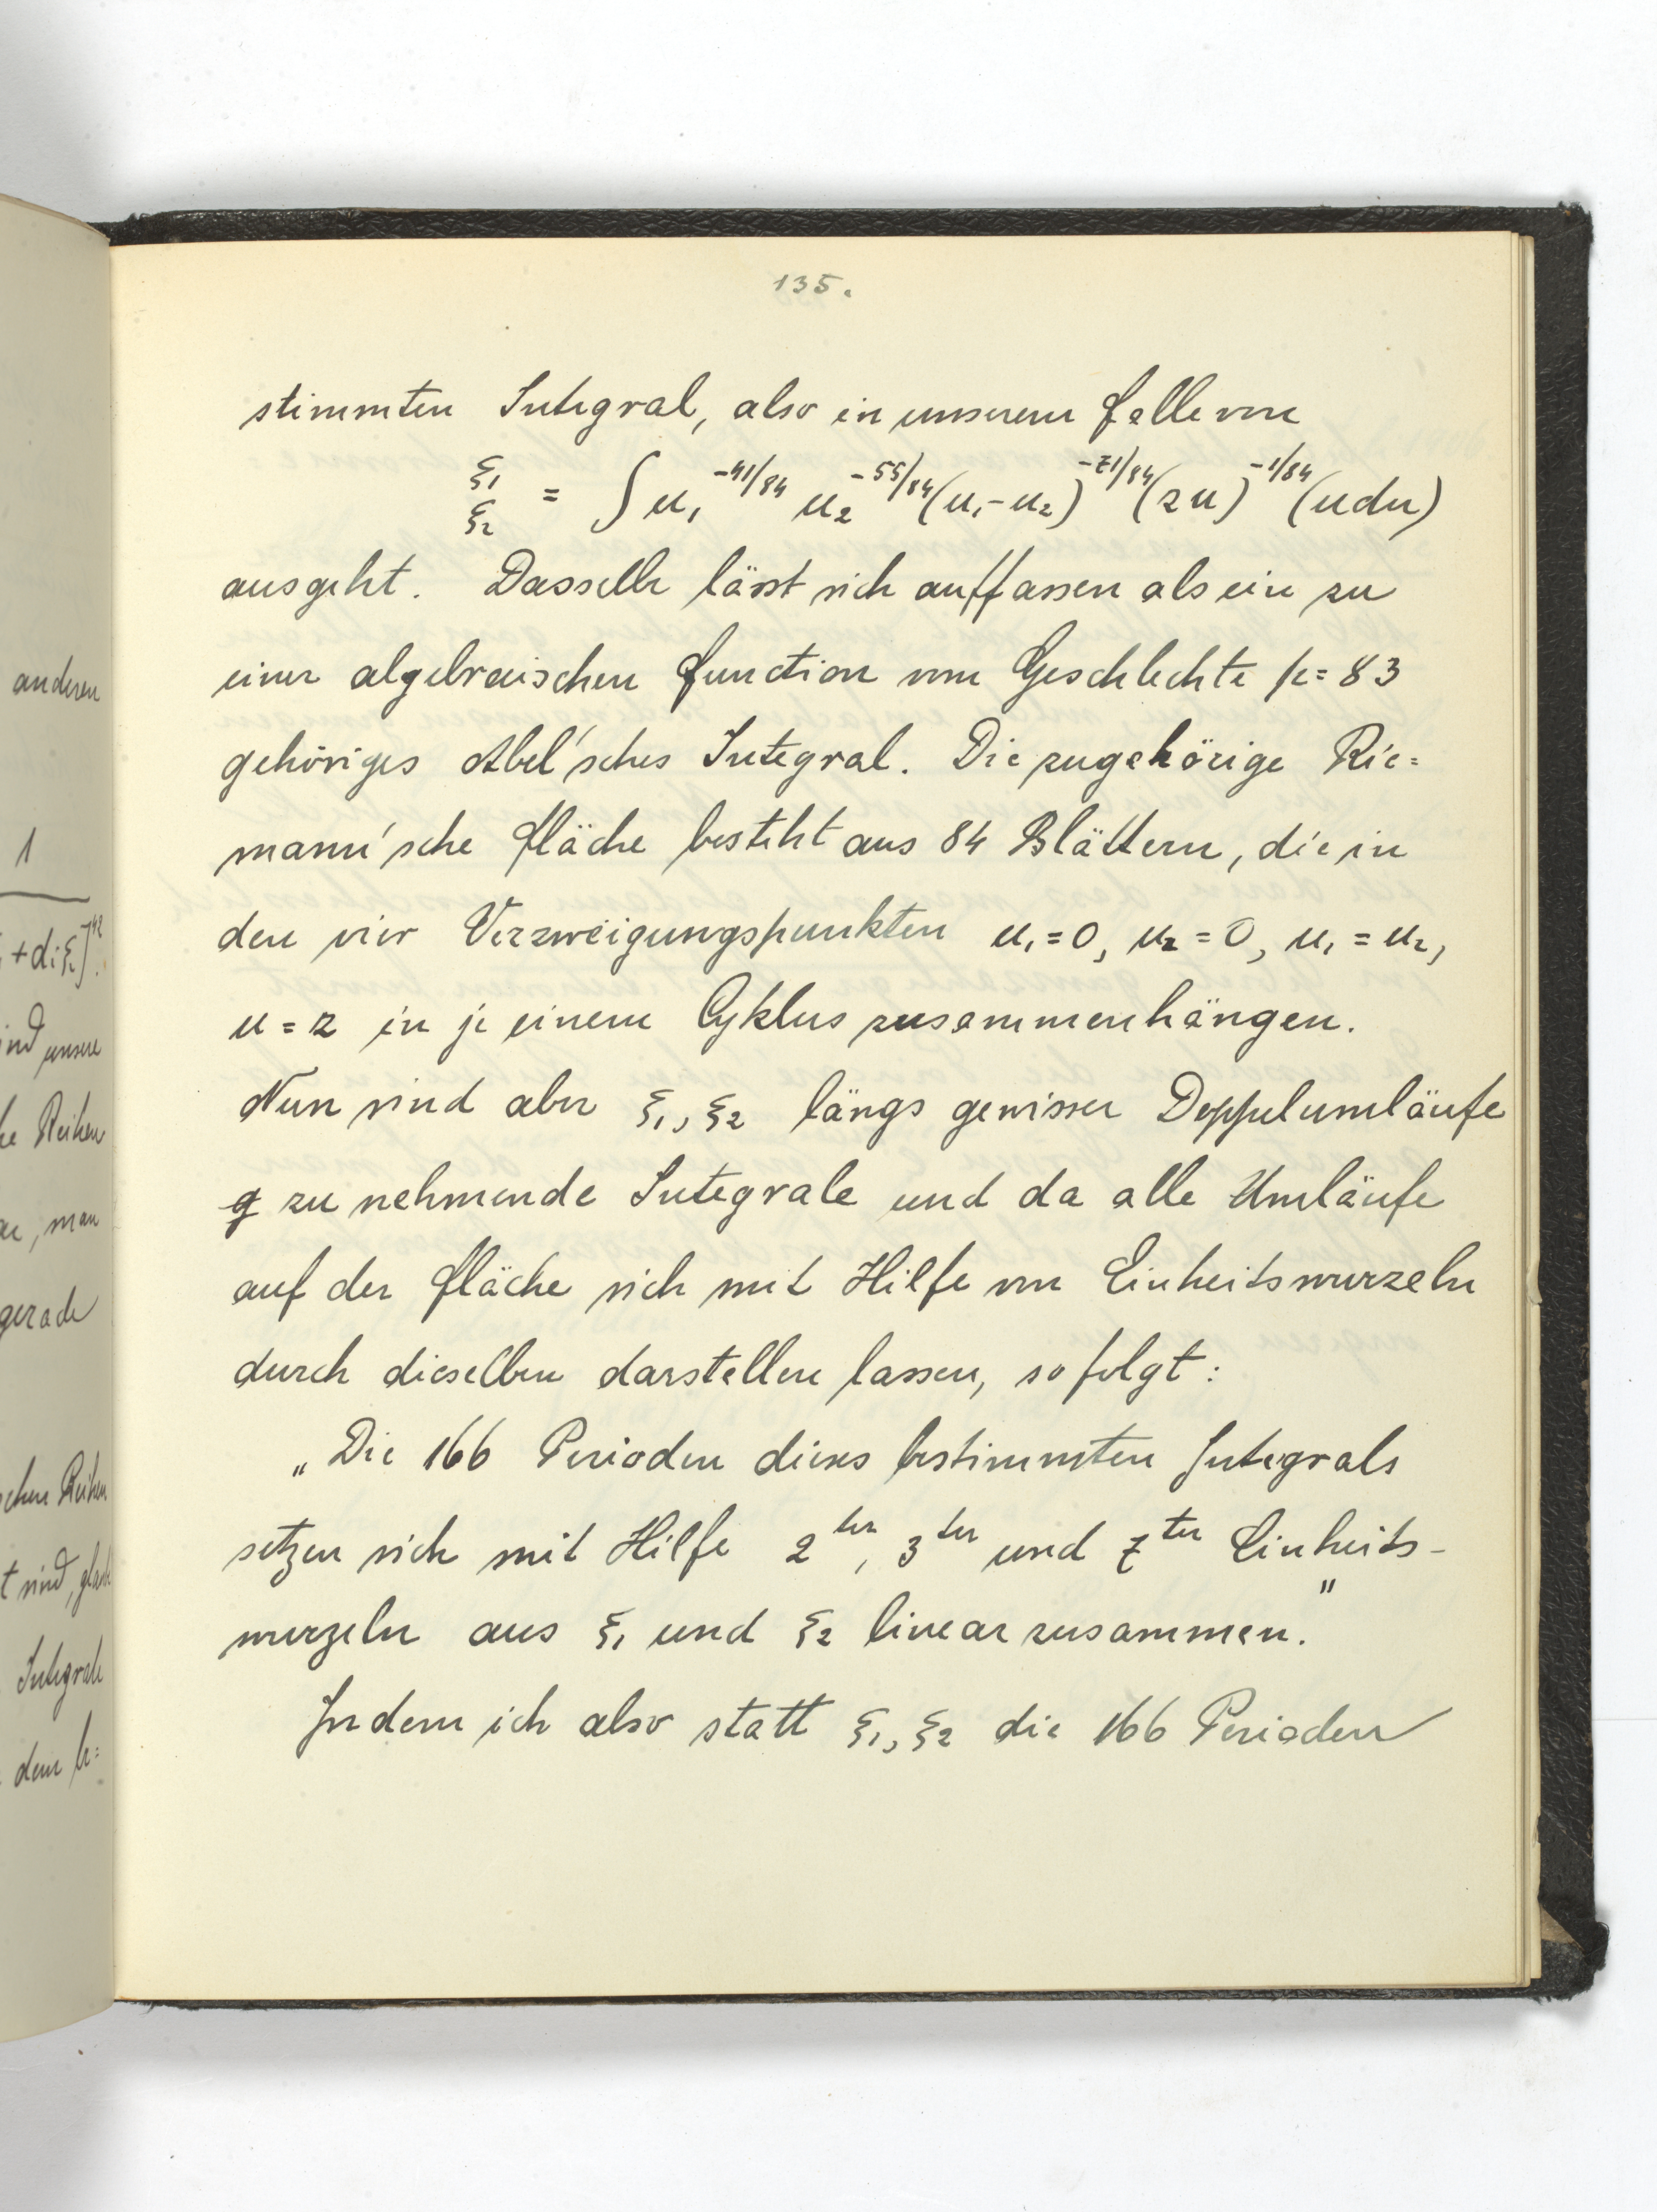 135.
stimmten Integral, also in unserem Falle von
ξ₁ ξ₂ = ∫ u₁^{-41/84} u₂^{-55/84} (u₁-u₂)^{-71/84} (zu)^{-1/84} (udu)
ausgeht. Dasselbe lässt sich auffassen als ein zu
einer algebraischen Function vom Geschlechte p=83
gehöriges Abel'sches Integral. Die zugehörige Rie=
mann'sche Fläche besteht aus 84 Blättern, die in
den vier Verzweigungspunkten u₁=0, u₂=0, u₁=u₂,
u=z in je einem Cyklus zusammenhängen.
Nun sind aber ξ₁, ξ₂ längs gewisser Doppelumläufe
g zu nehmende Integrale und da alle Umläufe
auf der Fläche sich mit Hilfe von Einheitswurzeln
durch dieselben darstellen lassen, so folgt:
„Die 166 Perioden dieses bestimmten Integrals
setzen sich mit Hilfe 2ter, 3ter und 7ter Einheits-
wurzeln aus ξ₁ und ξ₂ linear zusammen."
Indem ich also statt ξ₁, ξ₂ die 166 Perioden
anderen
1
ind unsere
Reihen
, man
gerade
Reihen
t sind,
Integrale
dem b=